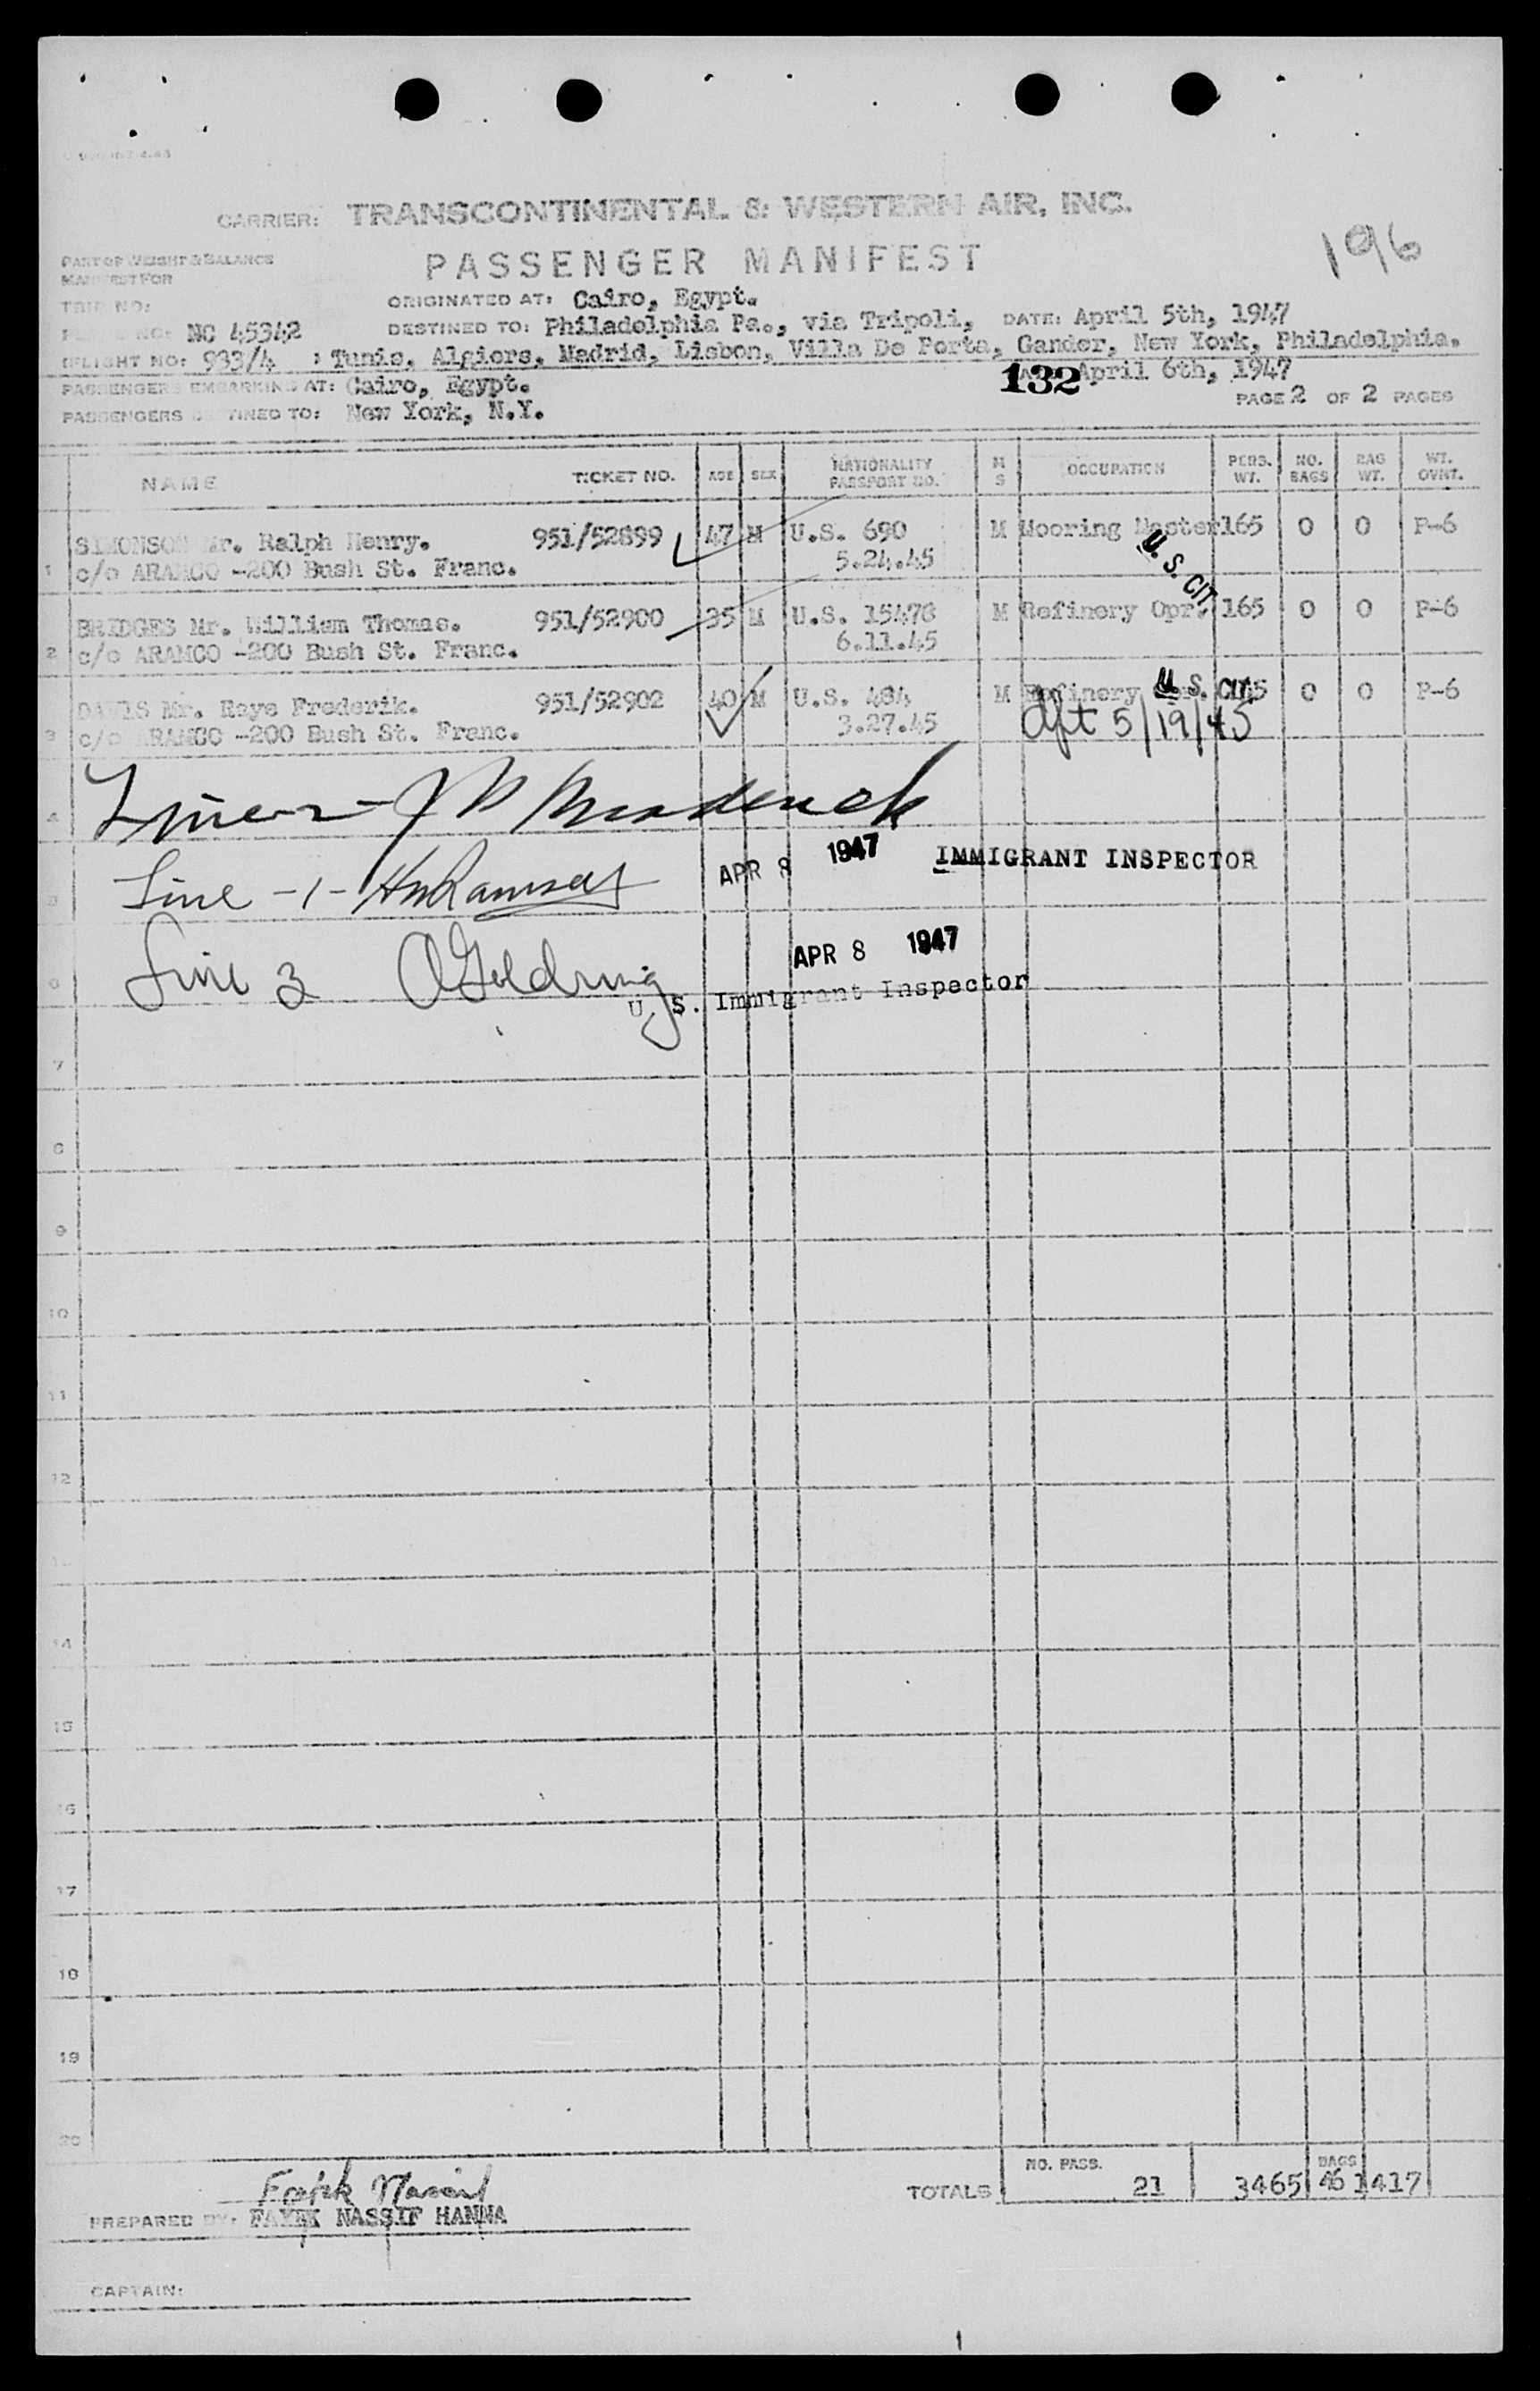 196
CARRIER: TRANSCONTINENTAL & WESTERN AIR, INC.
PASSENGER MANIFEST
PART OF WEIGHT & BALANCE
MANIFEST FOR
TRIP NO:
ORIGINATED AT: Cairo, Egypt.
PLANE NO: NC 45342 DESTINED TO: Philadelphia Pa., via Tripoli, DATE: April 5th, 1947
FLIGHT NO: 933/4 : Tunis, Algiers, Madrid, Lisbon, Villa De Porta, Gander, New York, Philadelphia.
PASSENGERS EMBARKING AT: Cairo, Egypt. 132 April 6th, 1947
PASSENGERS DESTINED TO: New York, N.Y. PAGE 2 OF 2 PAGES
NAME TICKET NO. AGE SEX NATIONALITY PASSPORT NO. M S OCCUPATION PERS. WT. NO. BAGS BAG WT. WT. OVNT.
SIMONSON Mr. Ralph Henry. 951/52899 47 M U.S. 690 M Mooring Master 165 0 0 P-6
1 c/o ARAMCO -200 Bush St. Franc. 5.24.45 U. S. CIT.
BRIDGES Mr. William Thomas. 951/52900 35 M U.S. 15478 M Refinery Opr. 165 0 0 P-6
2 c/o ARAMCO -200 Bush St. Franc. 6.11.45
DAVIS Mr. Raye Frederik. 951/52902 40 M U.S. 484 M Refinery U. S. CIT. 0 0 P-6
3 c/o ARAMCO -200 Bush St. Franc. 3.27.45 dft 5/19/45
4
APR 8 1947 IMMIGRANT INSPECTOR
5 Line -1- Ramsey
APR 8 1947
6 Line 3 Goldring
U. S. Immigrant Inspector
7
8
9
10
11
12
14
15
16
17
18
19
20
TOTALS NO. PASS. 21 3465 BAGS 46 1417
PREPARED BY: FAYEK NASSIF HANNA
CAPTAIN:
1